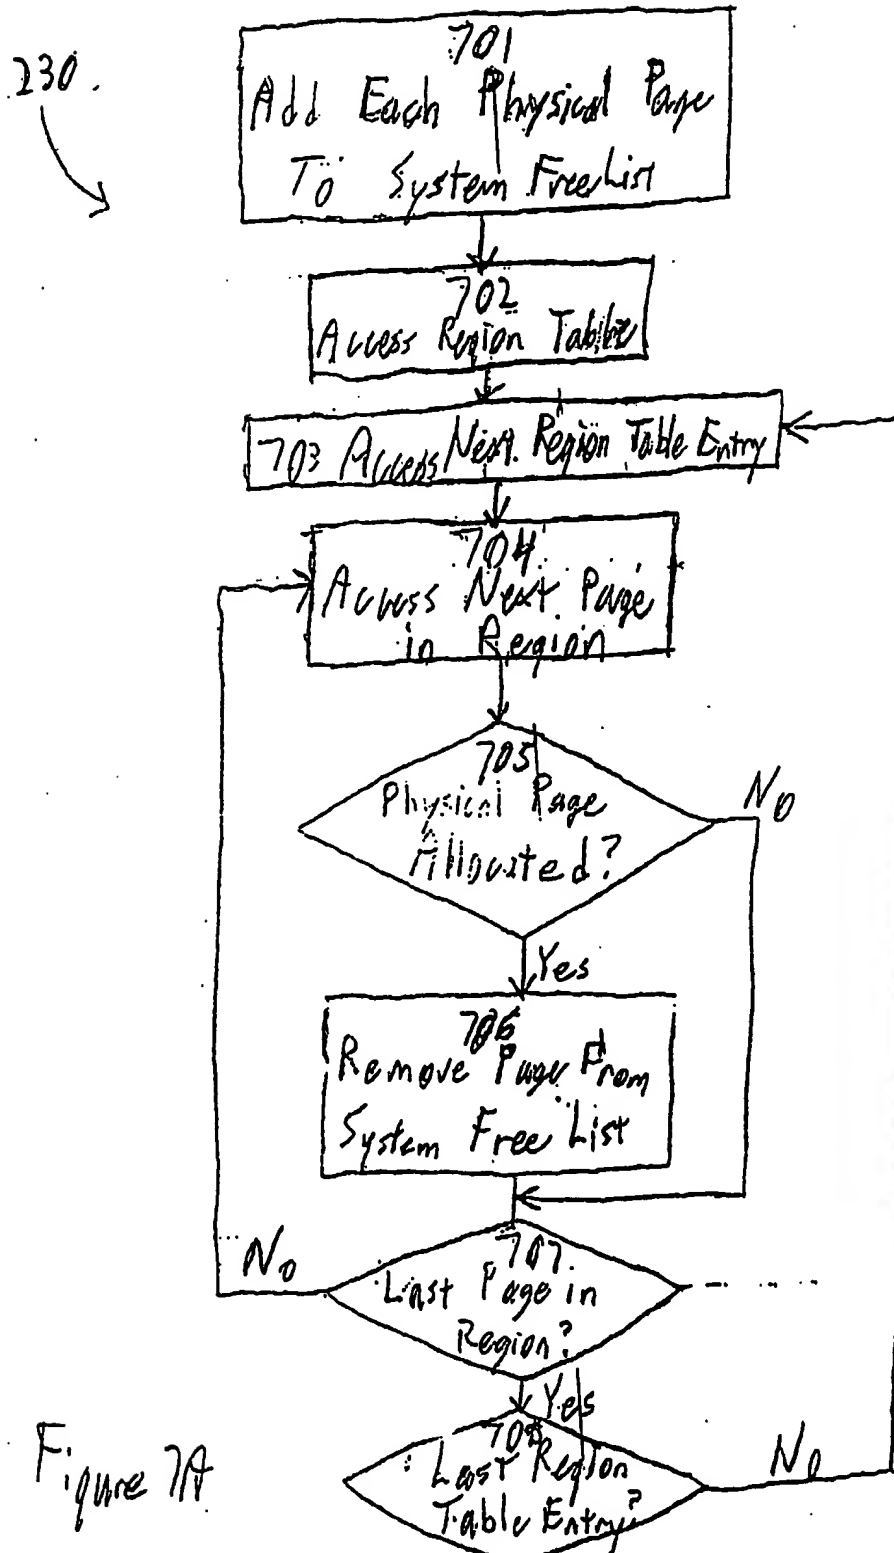 230.
701
Add Each Physical Page
To System Free List
702
Access Region Table
703 Access Next Region Table Entry
704
Access Next Page
in Region
705
Physical Page
Allocated?
No
Yes
706
Remove Page From
System Free List
No
707
Last Page in
Region?
Yes
708
Last Region
Table Entry?
No
Figure 7A